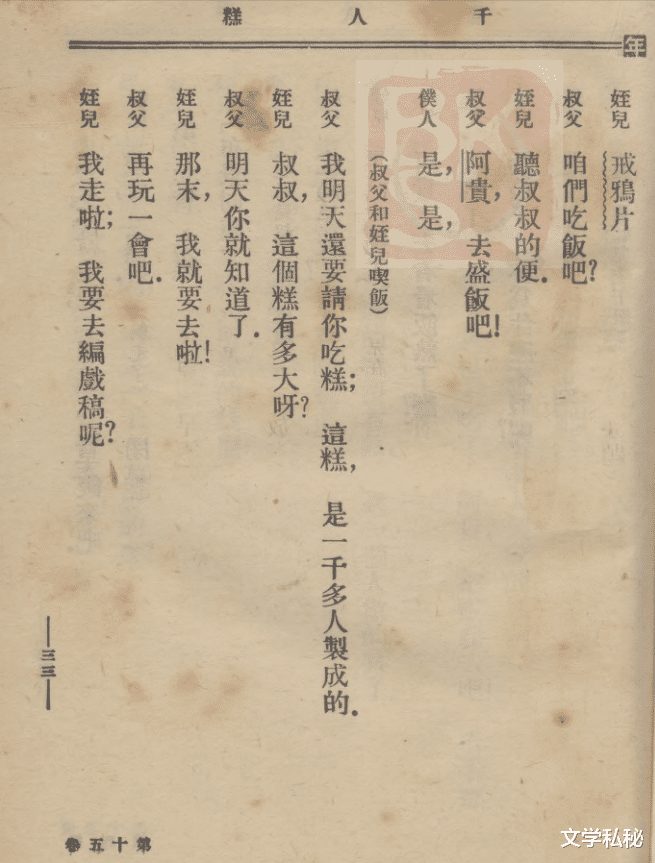 千人糕
年
姪兒 戒鴉片
叔父 咱們吃飯吧？
姪兒 聽叔叔的便．
叔父 阿貴，去盛飯吧！
僕人 是，是，
（叔父和姪兒喫飯）
叔父 我明天還要請你吃糕；這糕，是一千多人製成的．
姪兒 叔叔，這個糕有多大呀？
叔父 明天你就知道了．
姪兒 那末，我就要去啦！
叔父 再玩一會吧．
姪兒 我走啦；我要去編戲稿呢？
—三三—
第十五卷
文学私秘